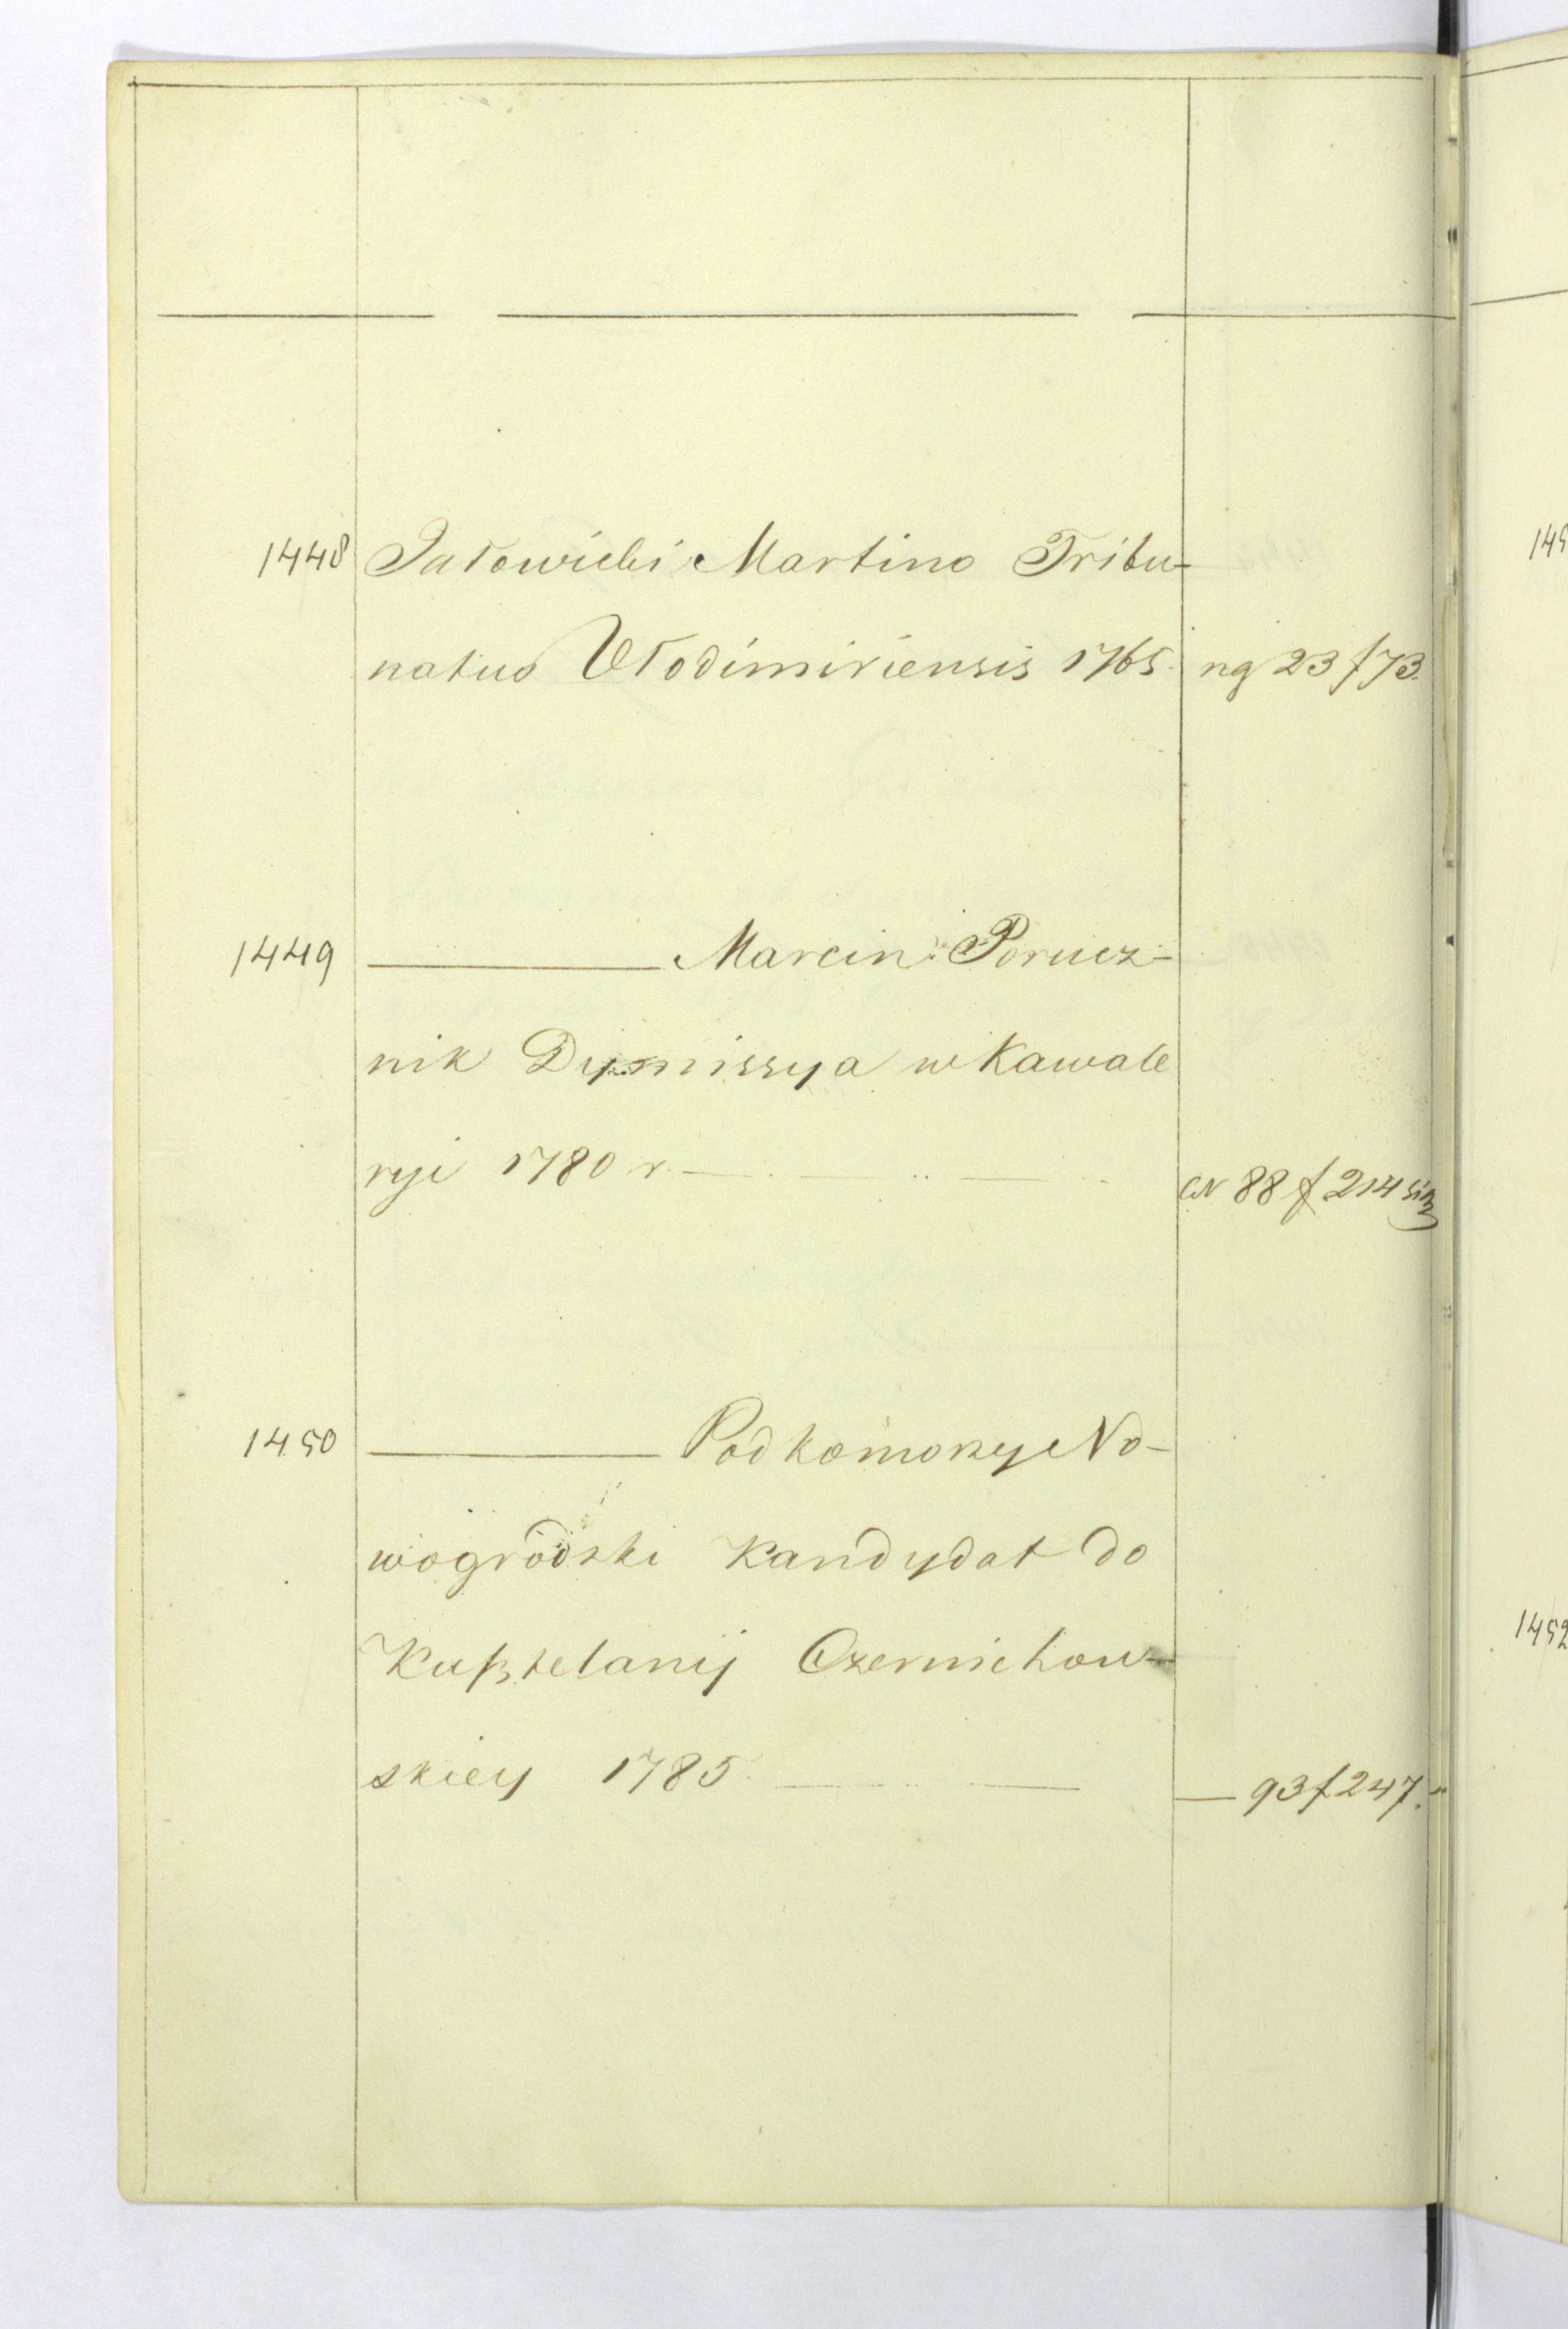 1448 Jałowicki Martino Tribu-
natus Włodimiriensis 1765. ng 23 f 73.
1449 Marcin Porucz-
nik Dymissya w Kawale
ryi 1780 r. CN 88 f 214
1450 Podkomorzy No-
wogródski Kandydat do
Kaßztelanij Czerniehow-
skiey 1785. 93 f 247.
145
1452